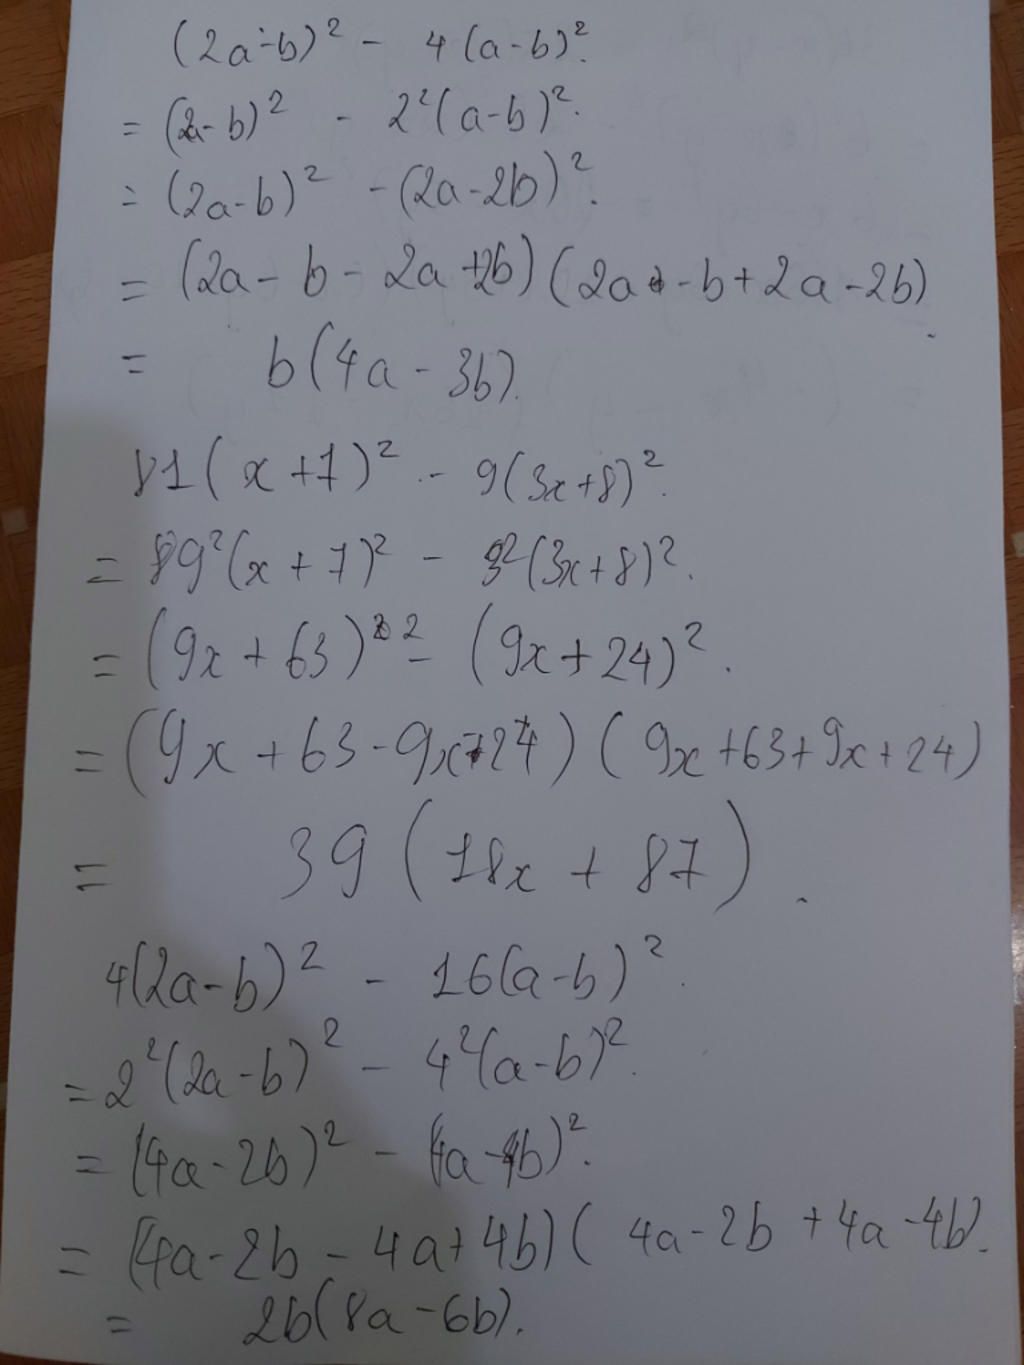 (2a-b)² - 4(a-b)².
= (2a-b)² - 2²(a-b)².
= (2a-b)² - (2a-2b)².
= (2a - b - 2a + 2b)(2a - b + 2a - 2b).
= b(4a - 3b).
81(x+7)² - 9(3x+8)².
= 9²(x+7)² - 3²(3x+8)².
= (9x+63)² - (9x+24)².
= (9x+63-9x-24)(9x+63+9x+24)
= 39(18x + 87).
4(2a-b)² - 16(a-b)².
= 2²(2a-b)² - 4²(a-b)².
= (4a-2b)² - (4a-4b)².
= (4a-2b - 4a+4b)(4a-2b + 4a-4b).
= 2b(8a-6b).